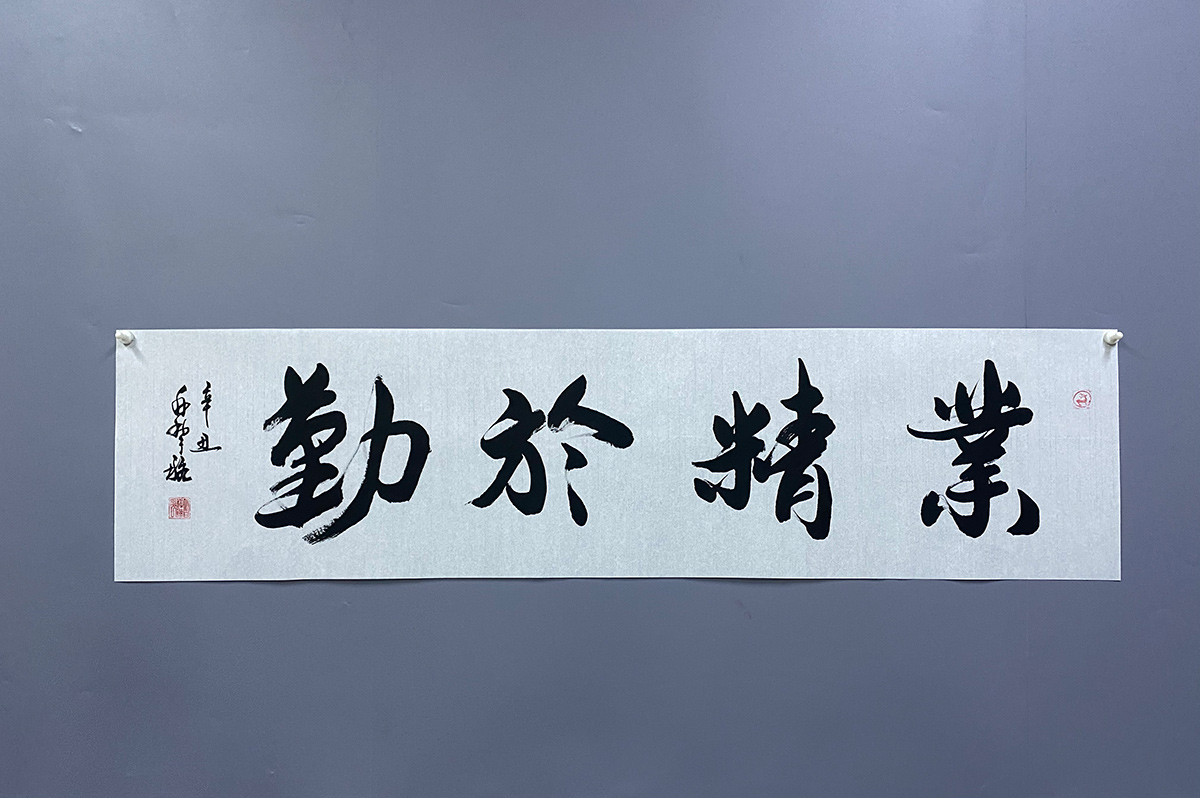 業精於勤
辛丑